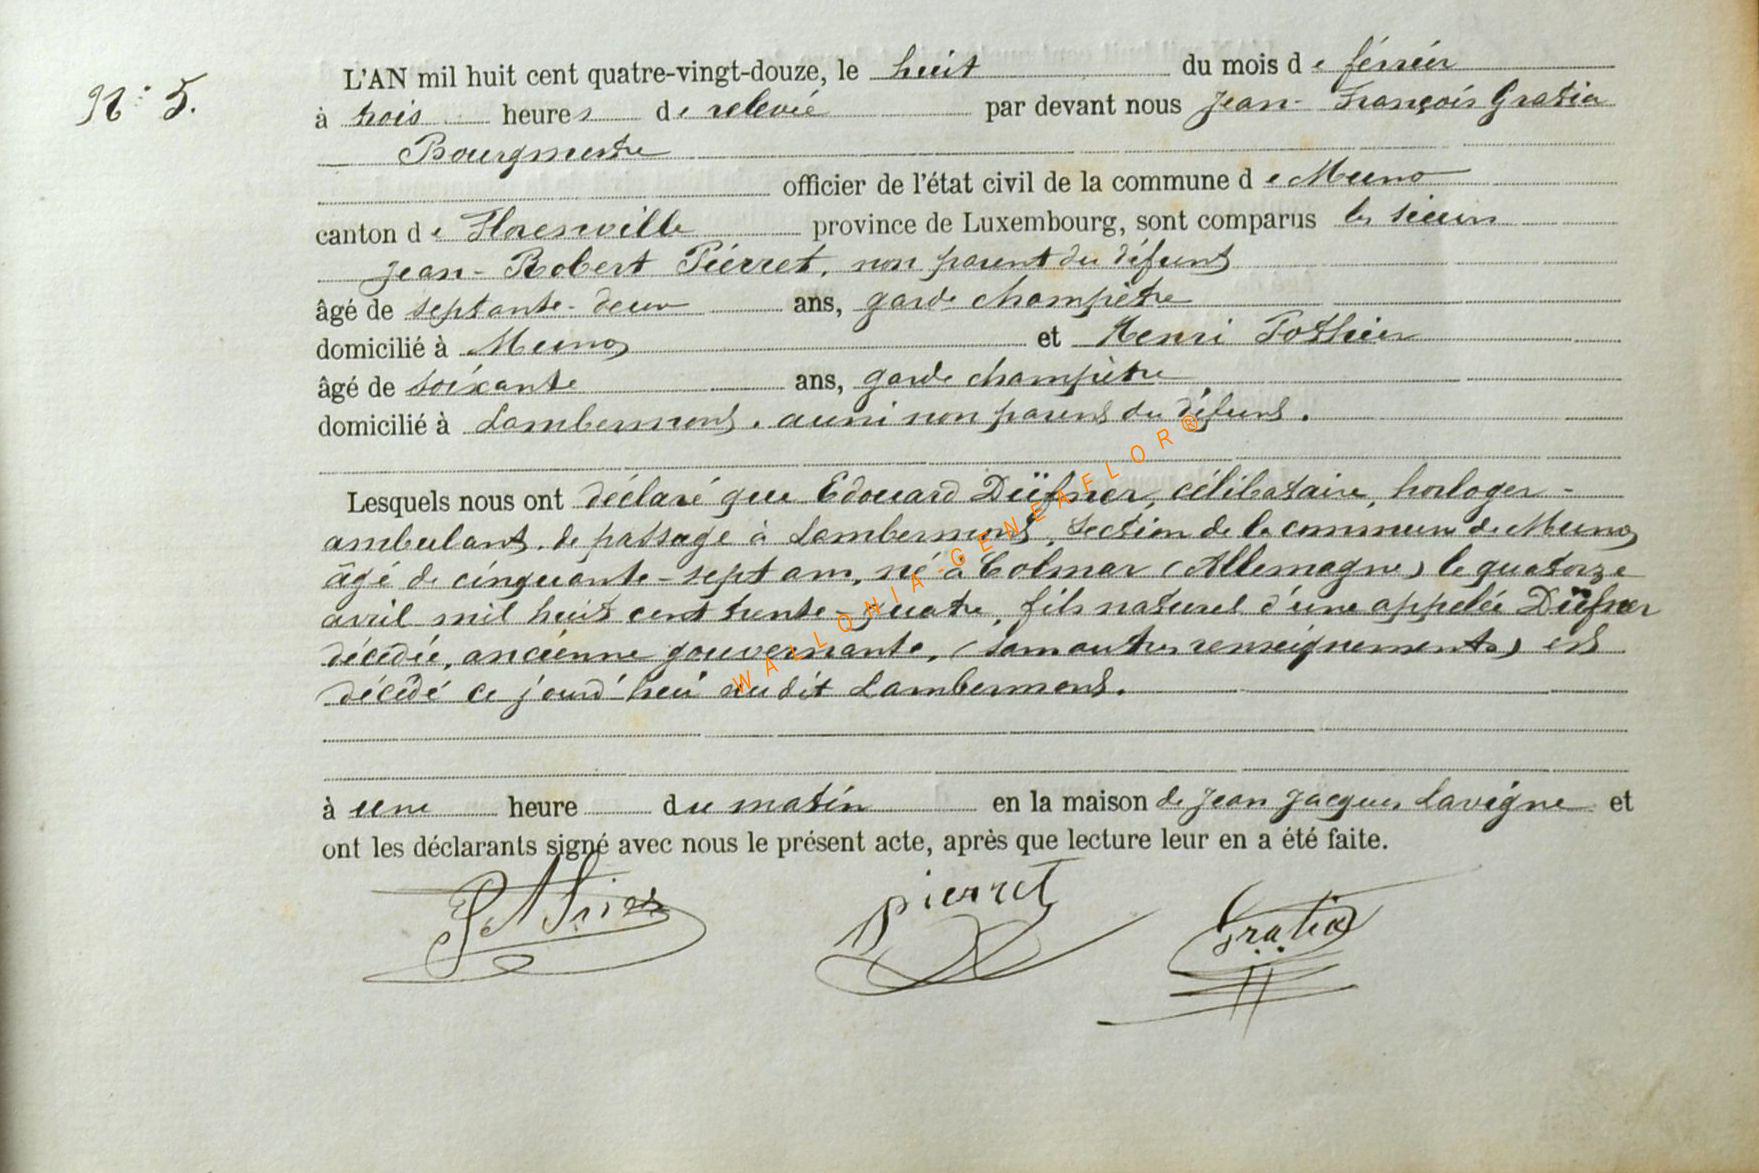 N° 5.
L'AN mil huit cent quatre-vingt-douze, le huit du mois de février
à trois heures de relevée par devant nous Jean-François Gratia
Bourgmestre
officier de l'état civil de la commune de Muno
canton de Florenville province de Luxembourg, sont comparus les sieurs
Jean-Robert Pierret, non parent du défunt
âgé de septante-deux ans, garde champêtre
domicilié à Muno, et Henri Pothier
âgé de soixante ans, garde champêtre
domicilié à Lambermont, aussi non parent du défunt.
Lesquels nous ont déclaré que Edouard Düfner, célibataire, horloger-
ambulant, de passage à Lambermont, section de la commune de Muno,
âgé de cinquante-sept ans, né à Colmar (Allemagne) le quatorze
avril mil huit cent trente-quatre, fils naturel d'une appelée Düfner
décédée, ancienne gouvernante, (sans autres renseignements) est
décédé ce jourd'hui audit Lambermont.
à une heure du matin en la maison de Jean Jacques Lavigne et
ont les déclarants signé avec nous le présent acte, après que lecture leur en a été faite.
Pothier pierret Gratia
WALLONIA-GENEAFLOR®